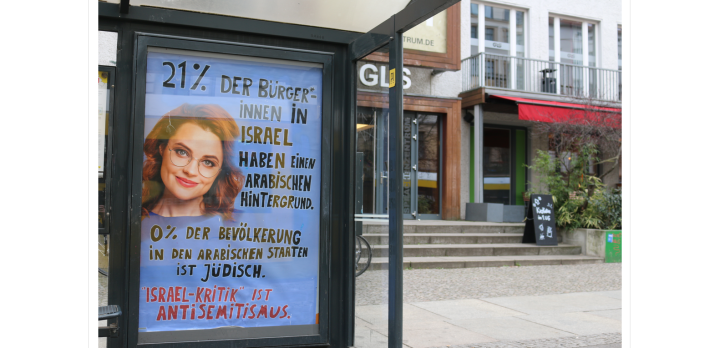 21% DER BÜRGER*
INNEN IN
ISRAEL
HABEN EINEN
ARABISCHEN
HINTERGRUND.
0% DER BEVÖLKERUNG
IN DEN ARABISCHEN STAATEN
IST JÜDISCH.
"ISRAEL-KRITIK" IST
ANTISEMITISMUS.
TRUM.DE
GLS